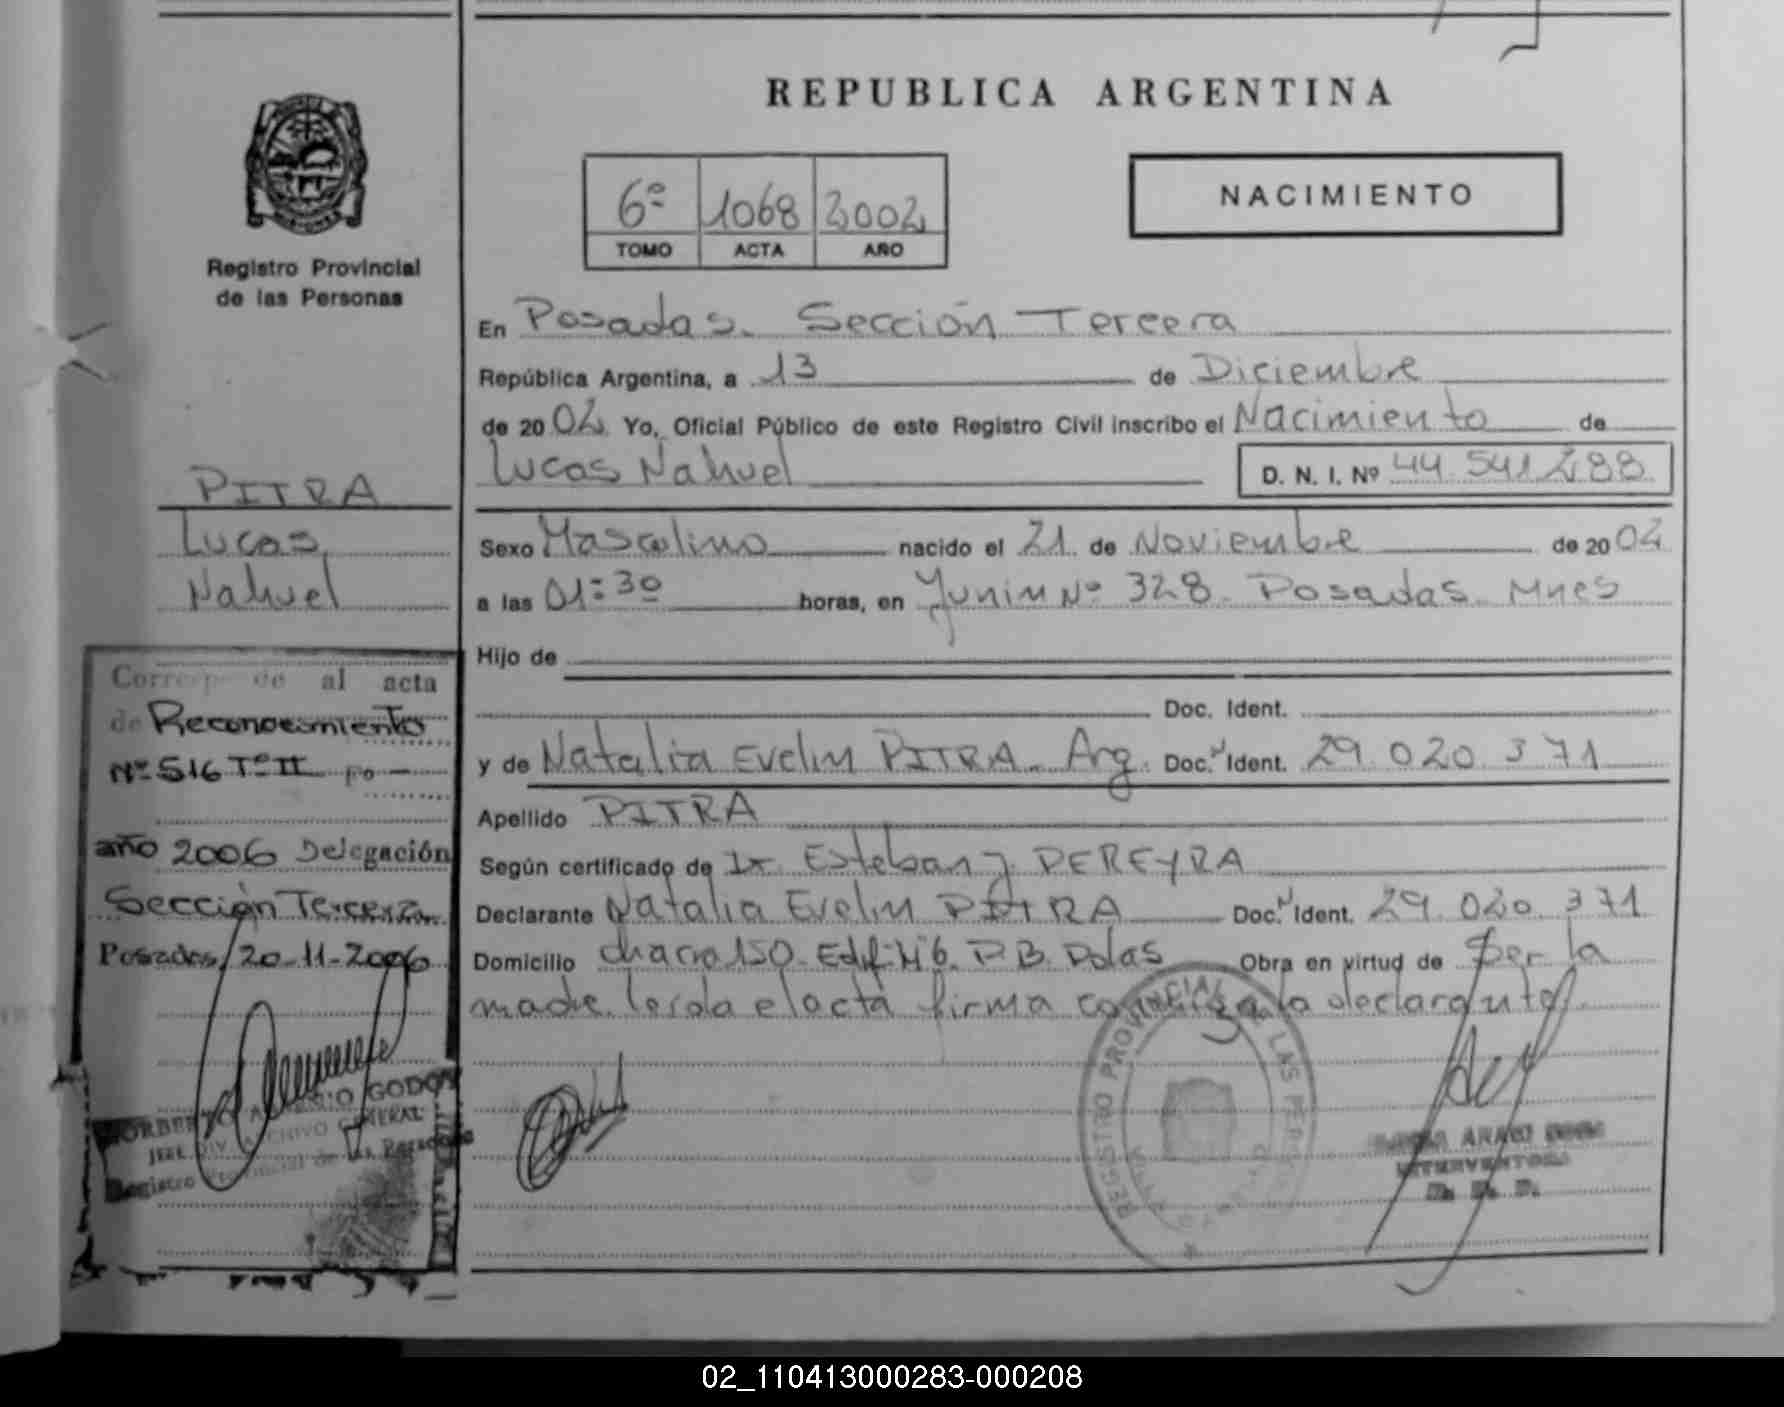 REPUBLICA ARGENTINA
6º 1068 2002
TOMO ACTA AÑO
NACIMIENTO
Registro Provincial
de las Personas
En Posadas. Sección Tercera
República Argentina, a 13 de Diciembre
de 2002 Yo, Oficial Público de este Registro Civil inscribo el Nacimiento de
Lucas Nahuel D. N. I. Nº 44.541.288
PITRA
Lucas
Nahuel
Sexo Masculino nacido el 21 de Noviembre de 2002
a las 01:30 horas, en Junin Nº 328. Posadas. Mnes
Hijo de
Doc. Ident.
y de Natalia Evelin PITRA. Arg. Doc. Ident. 29.020.371
Apellido PITRA
Según certificado de Dr. Esteban J. PEREYRA
Declarante Natalia Evelin PITRA Doc. Ident. 29.020.371
Domicilio chacra 150. Edif. Nº 6. P.B. Pdas Obra en virtud de Ser la
madre. Leída el acta firma conmigo la declarante.
Corresponde al acta
de Reconocimiento
Nº 516 Tº II Fº —
año 2006 Delegación
Sección Tercera
Posadas, 20-11-2006
GODOY
JEFE DIV. ARCHIVO GENERAL
Registro Provincial de las Personas
REGISTRO PROVINCIAL DE LAS PERSONAS
INTERVENTORA
02_110413000283-000208